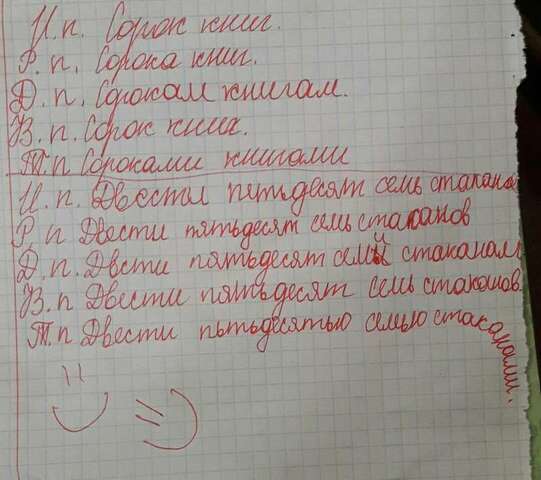 И.п. Сорок книг.
Р.п. Сорока книг.
Д.п. Сорокам книгам.
В.п. Сорок книг.
Т.п Сороками книгами
И.п. Двести пятьдесят семь стакано
Р.п Двести пятьдесят семь стаканов
Д.п. Двсти пятьдесят семи стаканам
В.п Двести пятьдесят семь стаканов.
Т.п Двести пьтьдесятью семью стаканами.